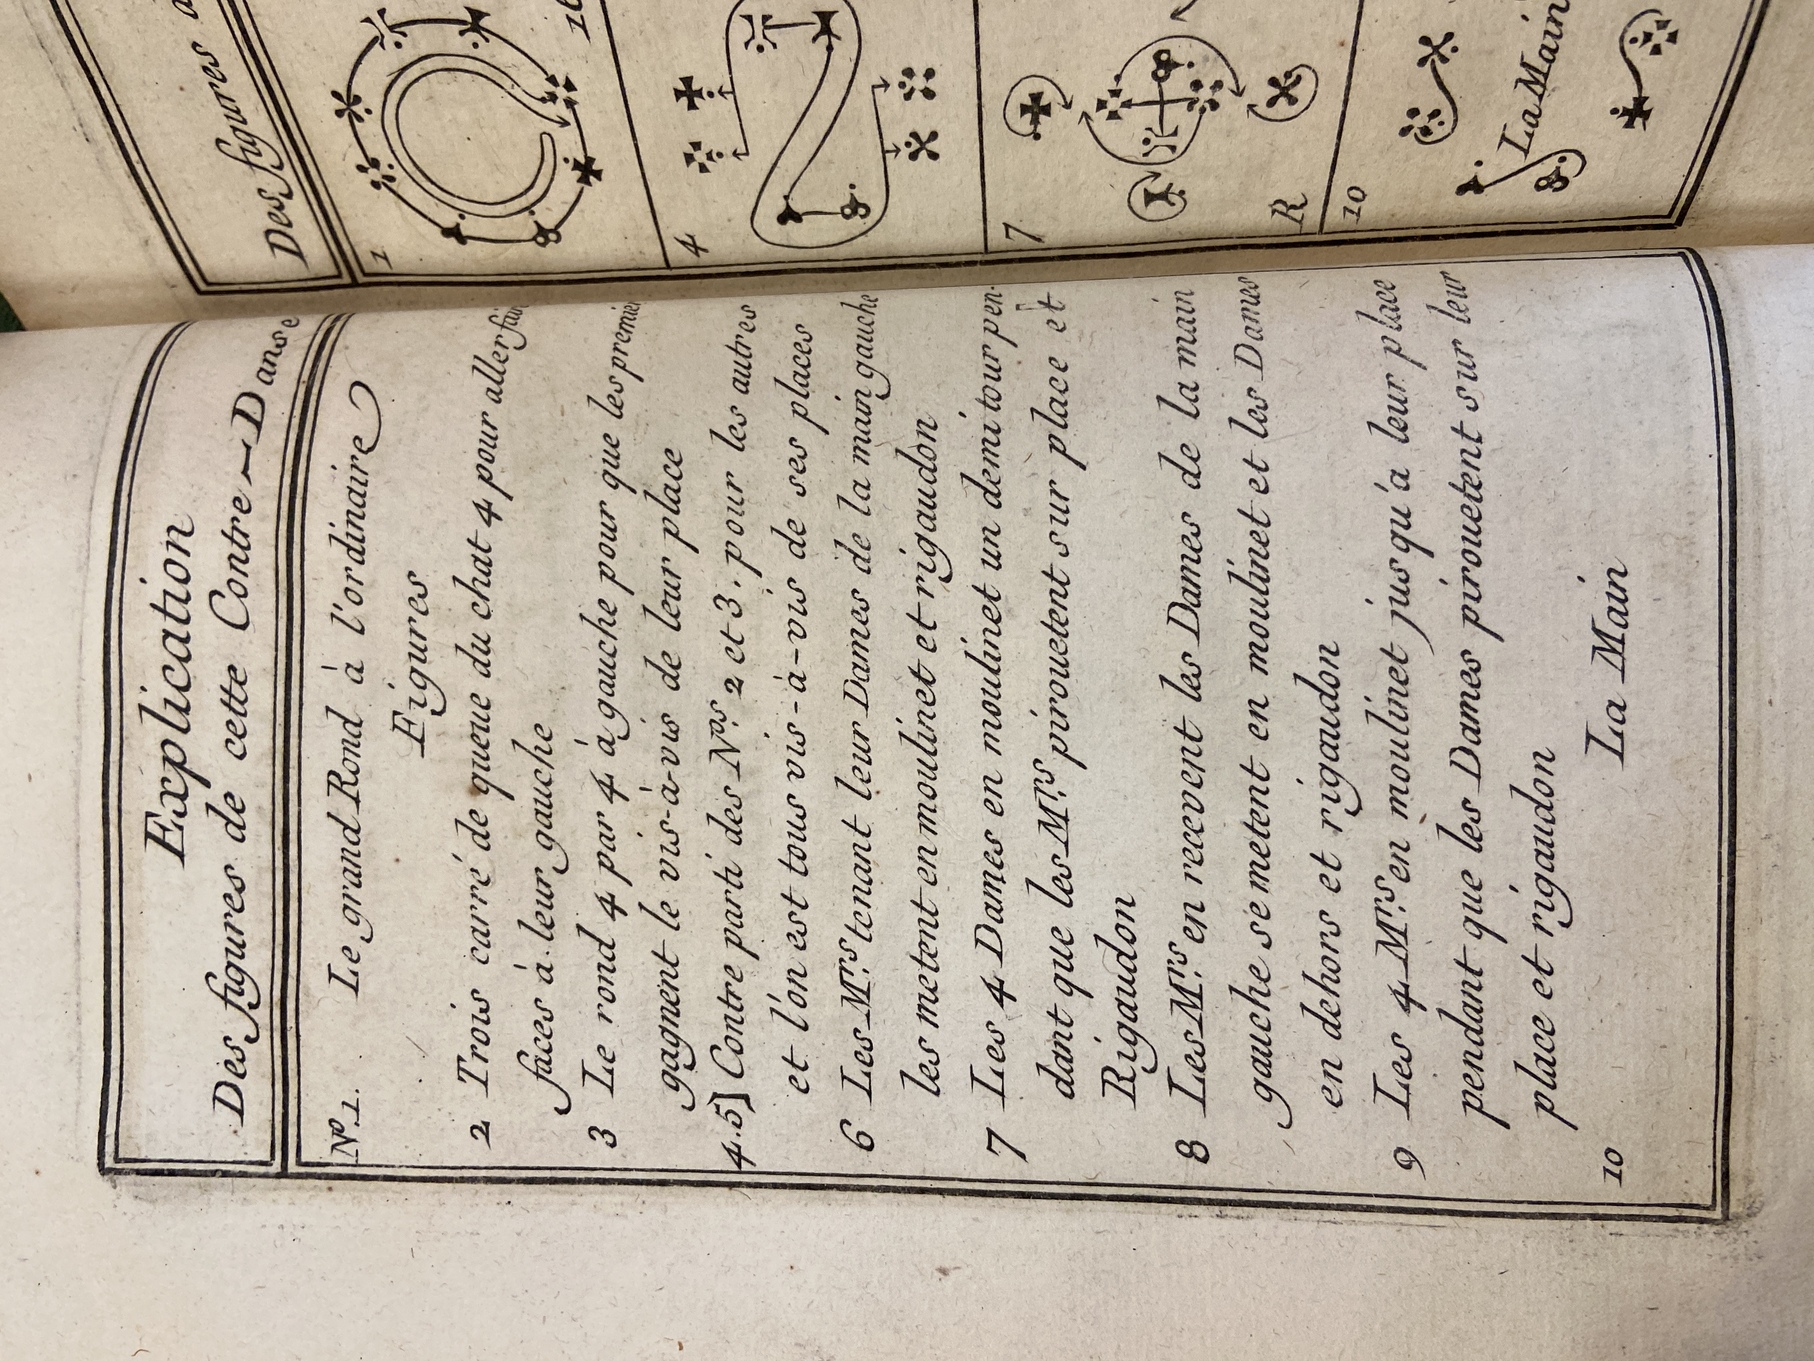 Explication
Des figures de cette Contre-Danse
No. 1. Le grand Rond à l'ordinaire
Figures
2 Trois carré de queue du chat 4 pour aller
faces à leur gauche
3 Le rond 4 par 4 à gauche pour que les premier
gagnent le vis-à-vis de leur place
4.5] Contre parti des Nos. 2 et 3. pour les autres
et l'on est tous vis-à-vis de ses places
6 Les Mrs. tenant leur Dames de la main gauche
les metent en moulinet et rigaudon
7 Les 4 Dames en moulinet un demi tour pen-
dant que les Mrs. pirouetent sur place et
Rigaudon
8 Les Mrs. en recevent les Dames de la main
gauche se metent en moulinet et les Dames
en dehors et rigaudon
9 Les 4 Mrs. en moulinet jusqu'a leur place
pendant que les Dames pirouetent sur leur
place et rigaudon
10 La Main
Des figures
1
16
4
7
R
10
La Main